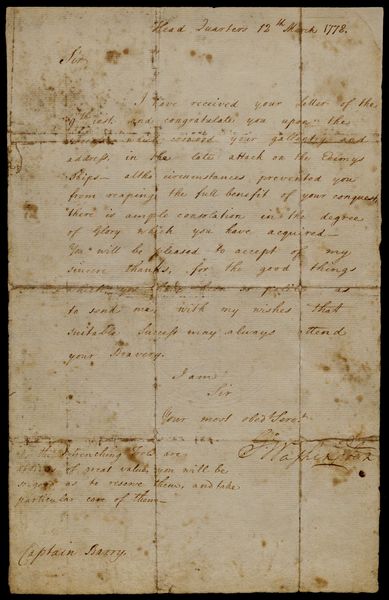 Head Quarters 12th March 1778.
Sir
I have received your letter of the
9th inst and congratulate you upon the
which crowned your gallantry and
address in the late attack on the Enemys
Ships — altho circumstances prevented you
from reaping the full benefit of your conquest,
there is ample consolation in the degree
of Glory which you have acquired —
You will be pleased to accept of my
sincere thanks, for the good things
which you have been so polite as
to send me, with my wishes that
suitable Success may always attend
your Bravery.
I am
Sir
Your most obedt Servt
Go Washington
As the Intrenching Tools are
of great value, you will be
so good as to reserve them, and take
particular care of them —
Captain Barry.